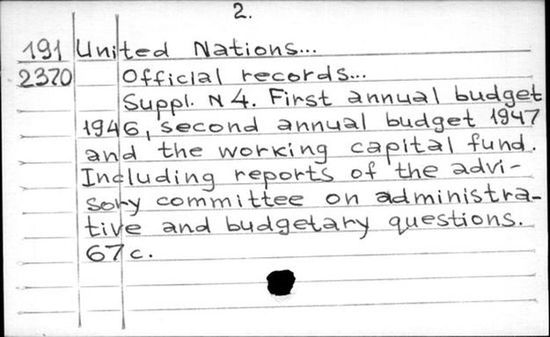 2.
191 United Nations...
2370 Official records...
Suppl. N 4. First annual budget
1946, second annual budget 1947
and the working capital fund.
Including reports of the advi-
sory committee on administra-
tive and budgetary questions.
67 c.